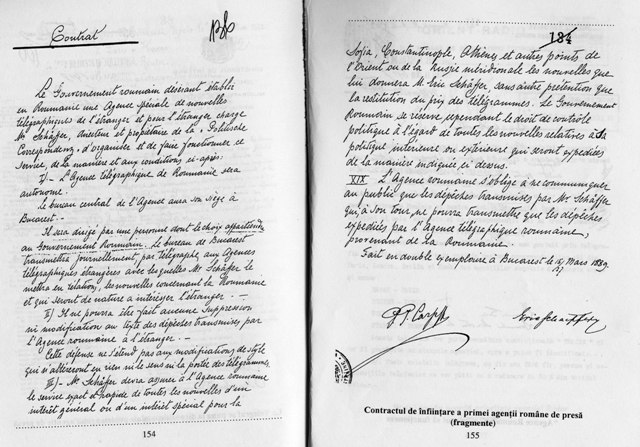 Contrat
180
Le Gouvernement roumain désirant établir
en Roumanie une Agence spéciale de nouvelles
télégraphiques de l'étranger et pour l'étranger charge
Mr Schäffer, Directeur et propriétaire de la "Politische
Correspondenz" d'organiser et de faire fonctionner ce
service, de la manière et aux conditions ci-après:
I) - L'Agence télégraphique de Roumanie sera
autonome.
Le bureau central de l'Agence aura son siège à
Bucarest. -
Il sera dirigé par une personne dont le choix appartiendra
au Gouvernement Roumain. Le bureau de Bucarest
transmettra journellement, par télégraphe, aux Agences
télégraphiques étrangères avec lesquelles Mr Schäffer le
mettra en relation, les nouvelles concernant la Roumanie
et qui seront de nature à intéresser l'étranger. -
II) Il ne pourra être fait aucune suppression
ni modification au texte des dépêches transmises par
l'Agence roumaine à l'étranger. -
Cette défense ne s'étend pas aux modifications de style
qui n'altéreront en rien le sens ou la portée des télégrammes.
III) - Mr Schäffer devra assurer à l'Agence roumaine
le service exact et rapide de toutes les nouvelles d'un
intérêt général ou d'un intérêt spécial pour la
154
184
Sofia, Constantinople, Athènes et autres points de
l'Orient ou de la Russie méridionale les nouvelles que
lui donnera Mr Eric Schäffer, sans autre prétention que
la restitution du prix des télégrammes. Le Gouvernement
Roumain se réserve cependant le droit de contrôle
politique à l'égard de toutes les nouvelles relatives à sa
politique intérieure ou extérieure qui seront expédiées
de la manière indiquée ci dessus.
XIX L'Agence roumaine s'oblige à ne communiquer
au public que les dépêches transmises par Mr Schäffer
qui, à son tour, ne pourra transmettre que les dépêches
expédiées par l'Agence télégraphique roumaine,
provenant de la Roumanie.
Fait en double exemplaire à Bucarest le Mars 1889.
P. P. Carp
Contractul de înfiinţare a primei agenţii române de presă
(fragmente)
155